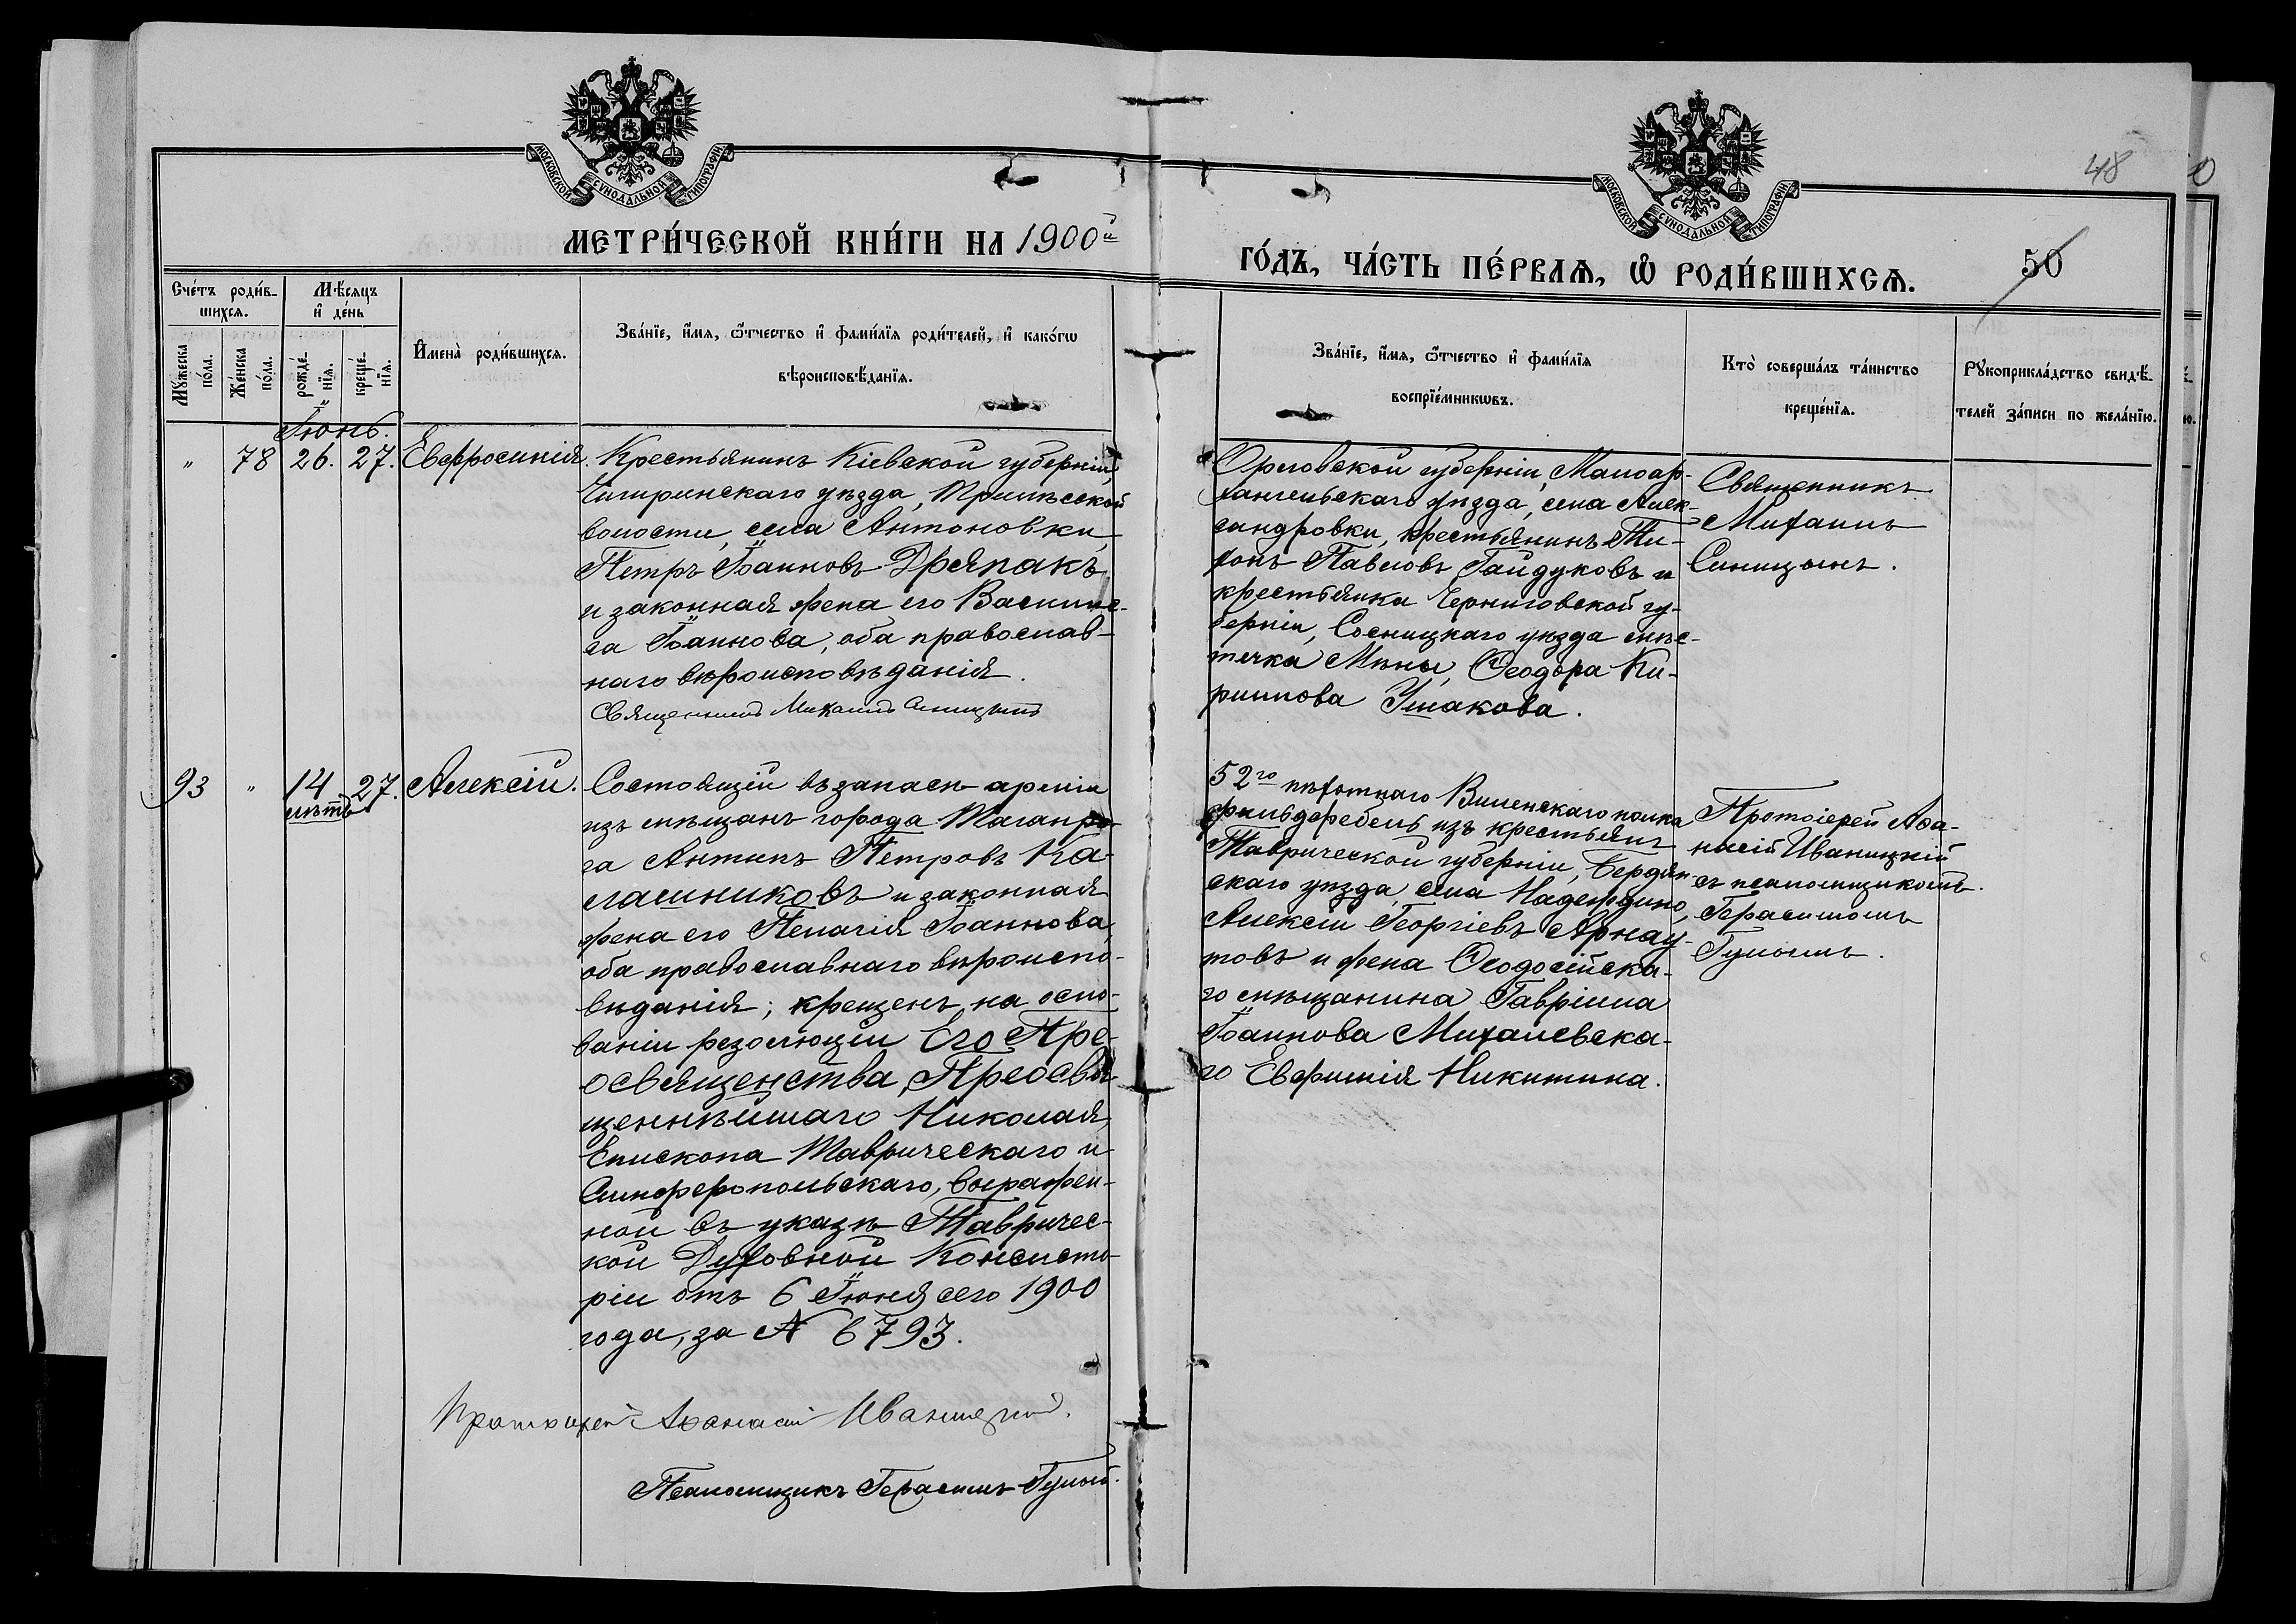 МОСКОВСКОЙ СѴНОДАЛЬНОЙ ТИПОГРАФІИ
МОСКОВСКОЙ СѴНОДАЛЬНОЙ ТИПОГРАФІИ
48
МЕТРИ́ЧЕСКОЙ КНИ́ГИ НА 1900й
ГО́ДЪ, ЧА́СТЬ ПЕ́РВАѦ, Ѡ РОДИ́ВШИХСѦ.
50
Сче́тъ роди́в-
шихсѧ.
Мѣ́сѧцъ
и҆ де́нь
Мꙋ́жеска
по́ла.
Же́нска
по́ла.
рожде́-
нїѧ.
креще́-
нїѧ.
И҆мена̀ роди́вшихсѧ.
Зва́нїе, и҆́мѧ, ѻ҆́тчество и҆ фами́лїѧ роди́телей, и҆ како́гѡ
вѣроисповѣ́данїѧ.
Зва́нїе, и҆́мѧ, ѻ҆́тчество и҆ фами́лїѧ
воспрїе́мникѡвъ.
Кто̀ соверша́лъ та́инство
креще́нїѧ.
Рꙋкоприкла́дство свидѣ́-
телей за́писи по жела́нїю.
Іюнь.
" 78 26. 27. Евфросинія.
Крестьянинъ Кіевской губерніи,
Чигиринскаго уѣзда, Триліѣсской
волости, села Антоновки,
Петръ Іоанновъ Дряпакъ
и законная жена его Василис-
са Іоаннова, оба православ-
наго вѣроисповѣданія.
Священникъ Михаилъ Синицынъ
Орловской губерніи, Малоар-
хангельскаго уѣзда, села Алек-
сандровки, крестьянинъ Ти-
хонъ Павловъ Гайдуковъ и
крестьянка Черниговской гу-
берніи, Сосницкаго уѣзда мѣс-
течка Мины, Ѳеодора Ки-
риллова Ушакова.
Священникъ
Михаилъ
Синицынъ.
93 " 14 27. Алексій.
лѣтъ
Состоящій въ запасѣ арміи
изъ мѣщанъ города Таганро-
га Антипъ Петровъ Ка-
лашниковъ и законная
жена его Пелагія Іоаннова,
оба православнаго вѣроиспо-
вѣданія; крещенъ на осно-
ваніи резолюціи Его Пре-
освященства, Преосвя-
щеннѣйшаго Николая,
Епископа Таврическаго и
Симферопольскаго, выражен-
ной въ указѣ Тавричес-
кой Духовной Консисто-
ріи отъ 6 Іюня сего 1900
года, за № 6793.
52го пѣхотнаго Виленскаго полка
фельдфебель изъ крестьянъ
Таврической губерніи, Бердян-
скаго уѣзда, села Надеждино,
Алексій Георгіевъ Арнау-
товъ и жена Ѳеодосійска-
го мѣщанина Гавріила
Іоаннова Михалевска-
го Евфимія Никитина.
Протоіерей Аѳа-
насій Иваницкій
съ псаломщикомъ
Герасимомъ
Гулымъ.
Протоіерей Аѳанасій Иваницкій.
Псаломщикъ Герасимъ Гулый.